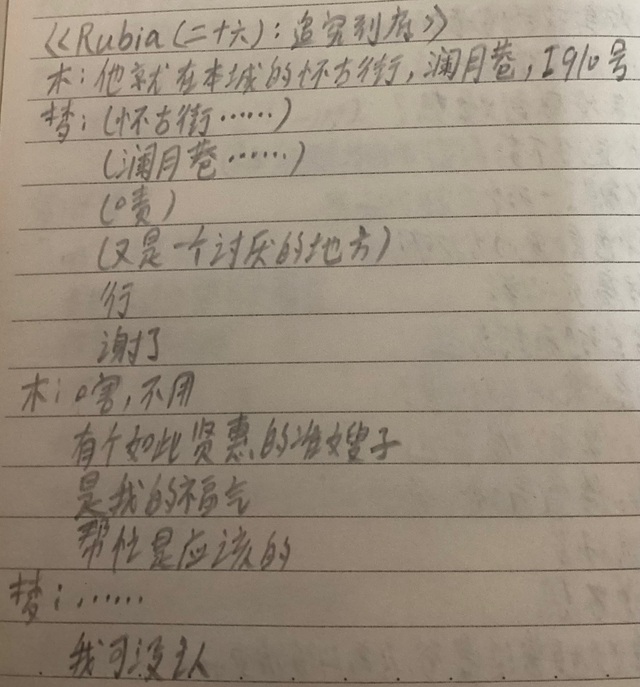 《Rubia(二十六):追究到底》
木:他就在本城的怀古街,澜月巷,I910号
梦:(怀古街……)
(澜月巷……)
(啧)
(又是一个讨厌的地方)
行
谢了
木:嗐,不用
有个如此贤惠的准嫂子
是我的福气
帮忙是应该的
梦:……
我可没认